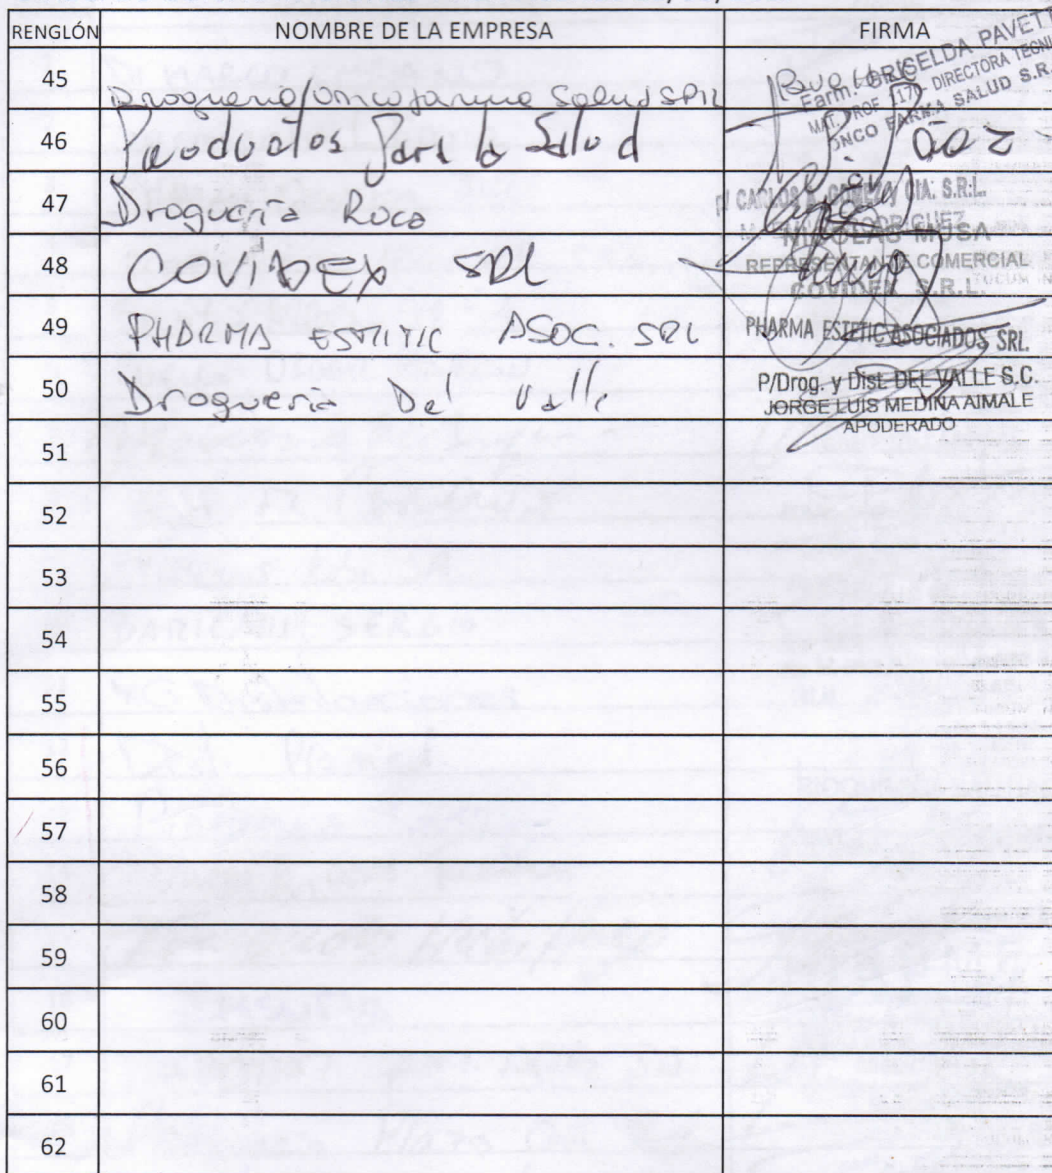 RENGLÓN NOMBRE DE LA EMPRESA FIRMA
45 Droguería Oncofarma Salud SRL
GRISELDA PAVET
Farm. DIRECTORA TECNI
MAT. PROF. 117
ONCO FARMA SALUD S.R.
46 Productos Para la Salud
47 Droguería Roca
CARLOS CIA. S.R.L.
48 COVIDEX SRL
NICOLAS MUSA
REPRESENTANTE COMERCIAL
COVIDEX S.R.L.
49 PHARMA ESTETIC ASOC. SRL
PHARMA ESTETIC ASOCIADOS SRL.
50 Droguería Del Valle
P/Drog. y Dist. DEL VALLE S.C.
JORGE LUIS MEDINA AIMALE
APODERADO
51
52
53
54
55
56
57
58
59
60
61
62